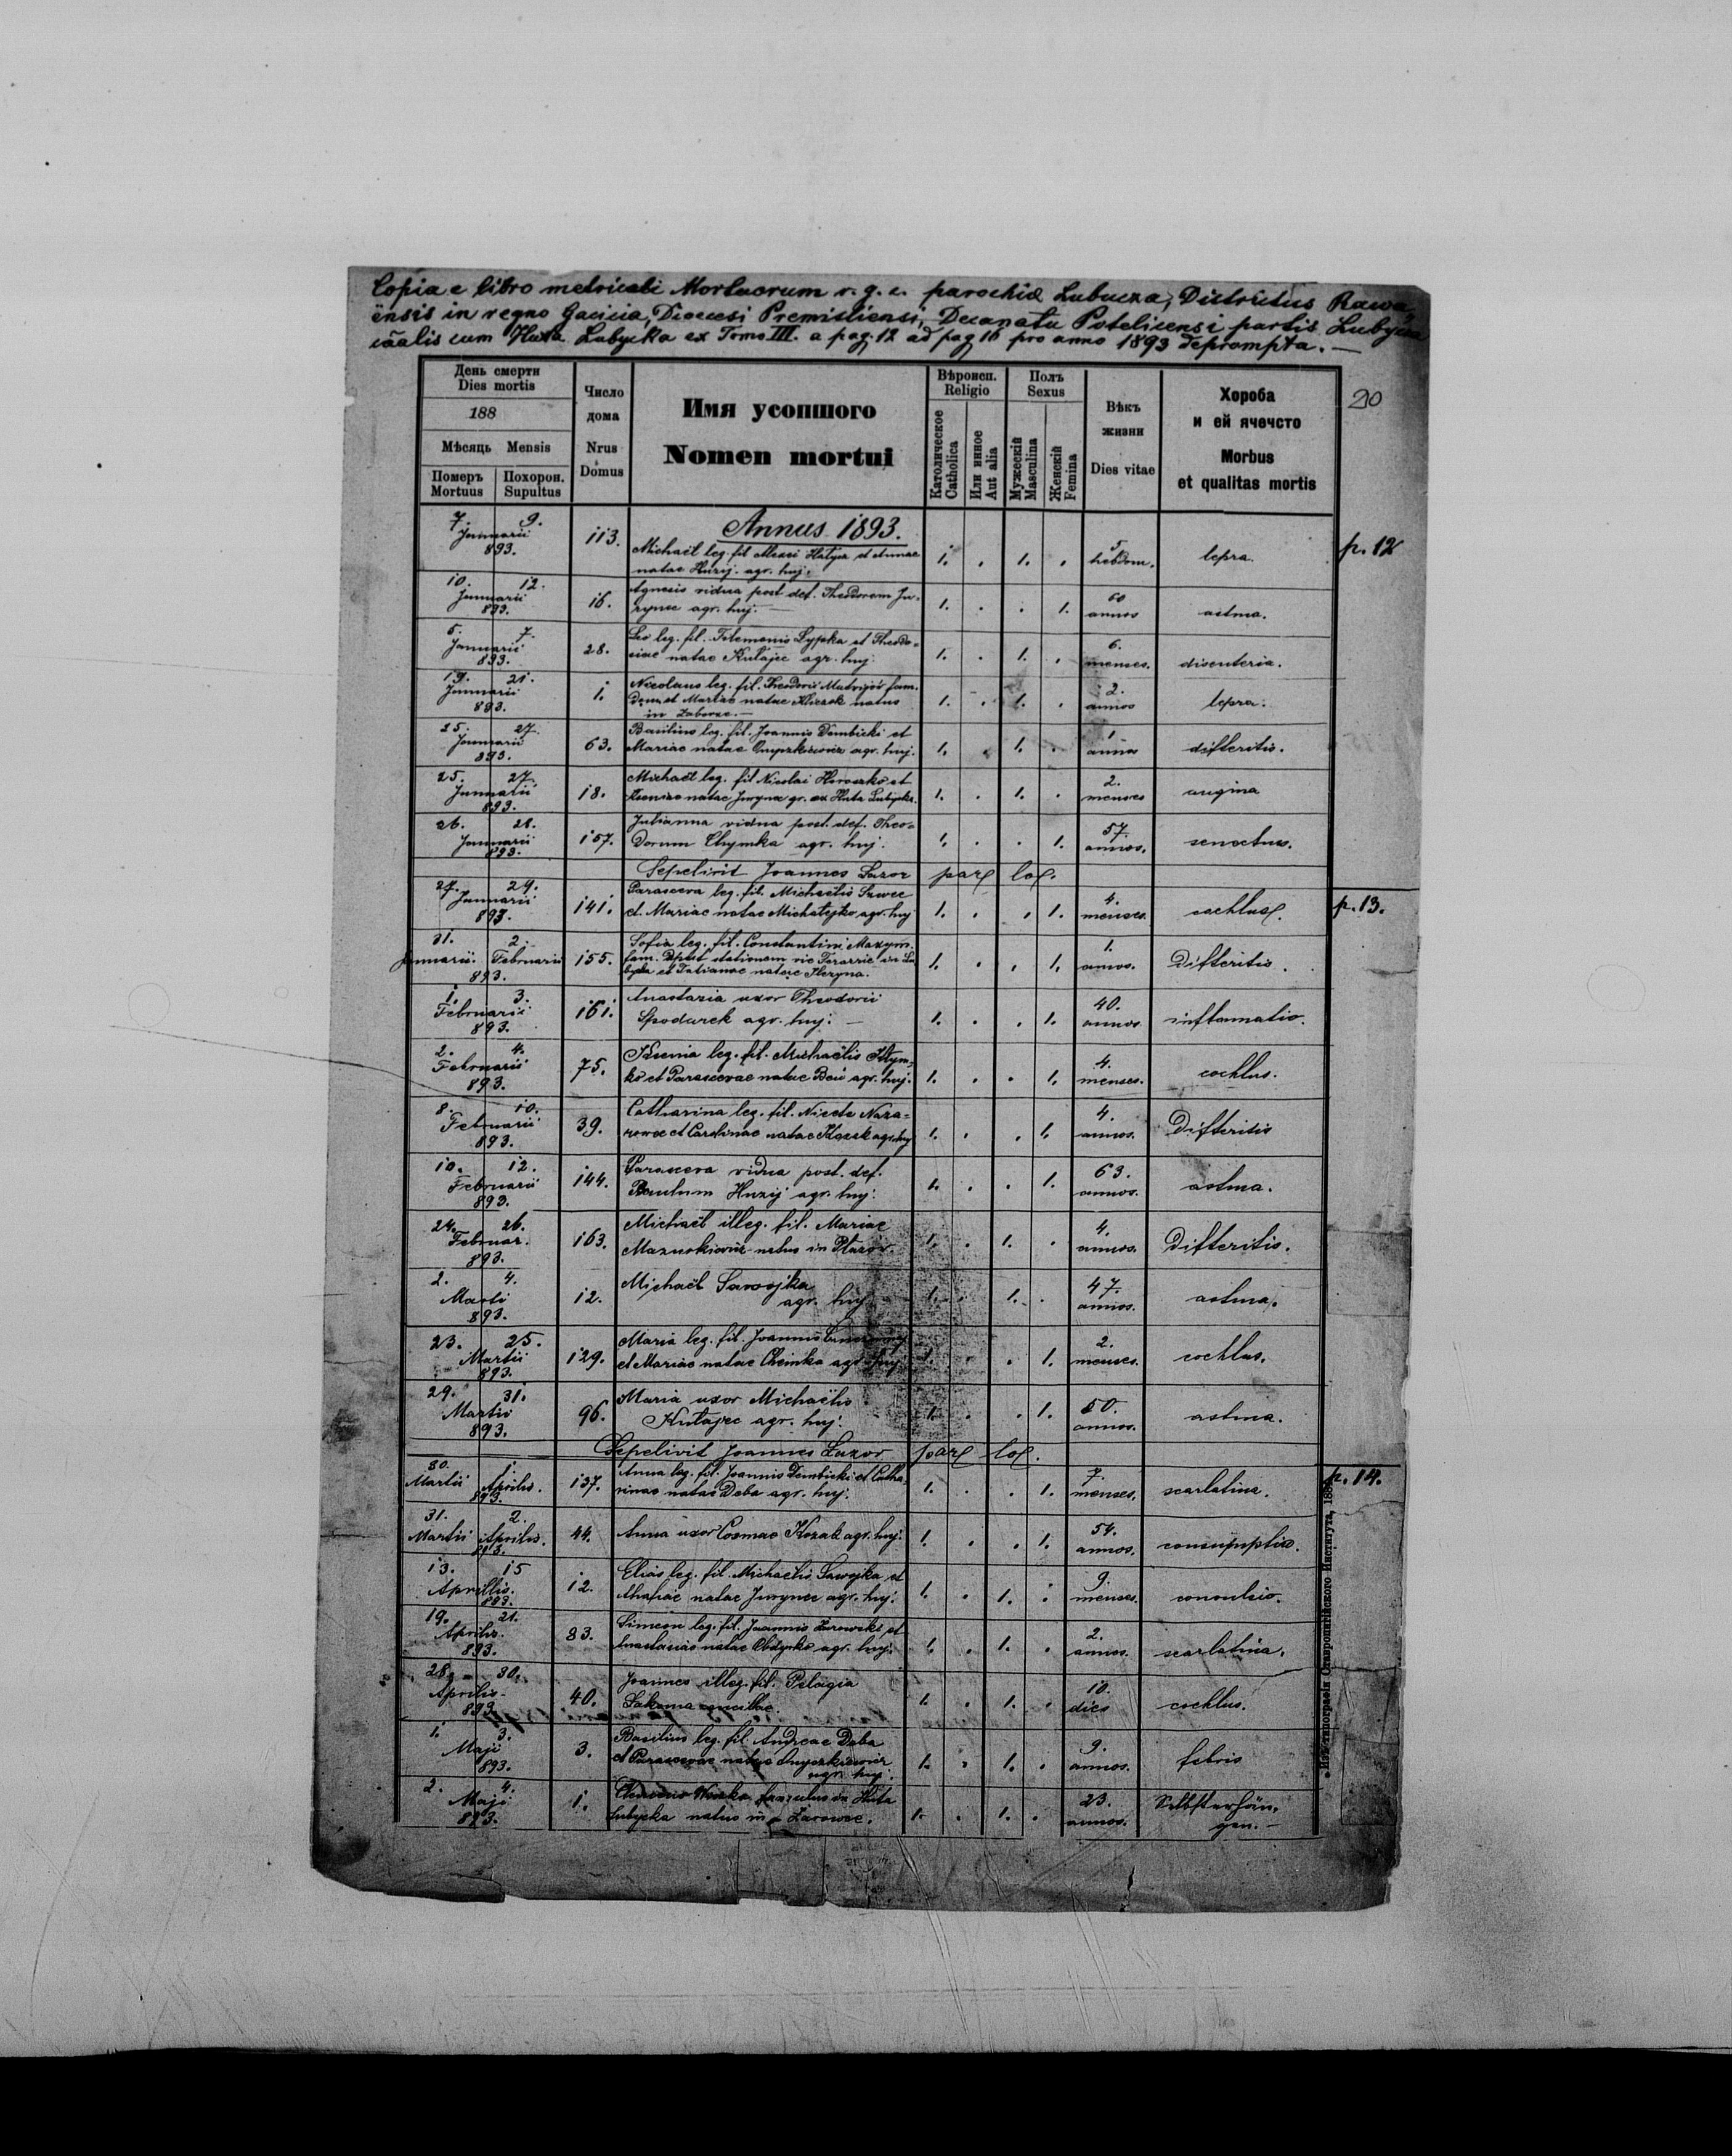 Copia e libro metricali Mortuorum r. g. c. parochiæ Lubycza, Districtus Rawa
ensis in regno Galicia, Diœcesi Premisliensi, Decanatu Potelicensi partis Lubycza
căalis cum Huta Lubycka ex Tomo III. a pag. 12 ad pag 16 pro anno 1893 deprompta.—
20
День смерти
Dies mortis
188
Мѣсяць Mensis
Померъ
Mortuus
Похорон.
Supultus
Число
дома
Nrus
Domus
Имя усопшого
Nomen mortui
Вѣроисп.
Religio
Католическое
Catholica
Или инное
Aut alia
Полъ
Sexus
Мужескій
Masculina
Женскій
Femina
Вѣкъ
жизни
Dies vitae
Хороба
и ей ячечсто
Morbus
et qualitas mortis
Annus 1893.
p. 12
7. 9.
Januarii
893.
113.
Michaël leg. fil Alexii Hatyn et Annae
natae Huzij. agr. huj.
1. . 1. .
5
hebdom.
lepra.
10. 12.
Januarii
893.
16.
Agnesis vidua post def. Theodorem Ju-
rynec agr. huj.—
1. . . 1.
60
annos
astma.
5. 7.
Januarii
893.
28.
Leo leg. fil. Filemonis Lypka et Theodo-
siae natae Kułajec agr. huj.
1. . 1. .
6.
menses.
disenteria.
19. 21.
Januarii
893.
1.
Nicolaus leg. fil. Theodorii fam.
et Mariae natae natus
in
1. . 1. .
2.
annos
lepra.
25. 27.
Januarii
893.
63.
Basilius leg. fil. Joannis Dembicki et
Mariae natae Onyszkiewicz agr. huj.
1. . 1. .
1
annos
difteritis.
25. 27.
Januarii
893.
18.
Michaël leg. fil Nicolai Horoszko et
Kseniae natae Juryna gr. ex Huta Lubycka.
1. . 1. .
2.
menses
angina
26. 28.
Januarii
893.
157.
Julianna vidua post. def. Theo-
dorum Chymka agr. huj.
1. . . 1.
57.
annos.
senectus.
Sepelivit Joannes Lazor par. loc.
27. 29.
Januarii
893.
141.
Parasceva leg. fil. Michaëlis Sawec
et. Mariae natae Michalejko agr. huj
1. . . 1.
4.
menses.
cochlus.
p. 13.
31. 2.
Januarii. Februarii
893.
155.
Sofia leg. fil. Constantini Maxym.
fam. stationem in Lu
et Tatianae natae Heryna.
1. . . 1.
1.
annos.
Difteritis.
1. 3.
Februarii
893.
161.
Anastazia uxor Theodorii
Spodarek agr. huj.—
1. . . 1.
40.
annos
inflamatio.
2. 4.
Februarii
893.
75.
Ksenia leg. fil. Michaëlis Klym-
ko et Parascevae natae agr. huj.
1. . . 1.
4.
menses.
cochlus.
8. 10.
Februarii
893.
39.
Catharina leg. fil. Nicetae Naza-
rowec et Carolinae natae Kozak agr. huj
1. . . 1.
4.
annos.
Difteritis
10. 12.
Februarii
893.
144.
Parasceva vidua post. def.
Paulum Huzij agr. huj.
1. . . 1.
63.
annos.
astma.
24. 26.
Februar.
893.
163.
Michaël illeg. fil. Mariae
natus in Płazów.
1. . 1. .
4.
annos.
Difteritis.
2. 4.
Marti
893.
12.
Michaël Sawojka
agr. huj
1. . 1. .
47.
annos.
astma.
23. 25.
Martii
893.
129.
Maria leg. fil. Joannis
et Mariae natae Cheimka agr. huj
1. . . 1.
2.
menses.
cochlus.
29. 31.
Martii
893.
96.
Maria uxor Michaëlis
Kułajec agr. huj.
1. . . 1.
50.
annos.
astma.
Sepelivit Joannes Lazor par. loc.
30. 1.
Martii Aprilis.
893.
137.
Anna leg. fil. Joannis Dembicki et Catha-
rinae natae Deba agr. huj.
1. . . 1.
7.
menses.
scarlatina.
p. 14.
31. 2.
Martii Aprilis.
893.
44.
Anna uxor Cosmae Kozak agr. huj.
1. . . 1.
54.
annos.
consumptio.
13. 15
Aprillis.
893.
12.
Elias leg. fil. Michaëlis Sawojka et
Ahafiae natae Jurynec agr. huj.
1. . 1. .
9.
menses.
convulsio.
19. 21.
Aprilis.
893.
83.
Simeon leg. fil. Joannis Zurowski et
Anastasiae natae agr. huj.
1. . 1. .
2.
annos.
scarlatina.
28. 30.
Aprilis.
893.
40.
Joannes illeg. fil. Pelagia
Sakoma ancillae.
1. . 1. .
10.
dies
cochlus.
1. 3.
Maji
893.
3.
Basilius leg. fil. Andreae Deba
et Parascevae natae Onyszkiewicz
agr. huj.
1. . 1. .
9.
annos.
febris
2. 4.
Maji
893.
1.
famulus in Huta
Lubycka natus in Zarowce.
1. . 1. .
23.
annos.
Selbsterhän-
gen.—
Изъ типографіи Ставропигійского Института, 188